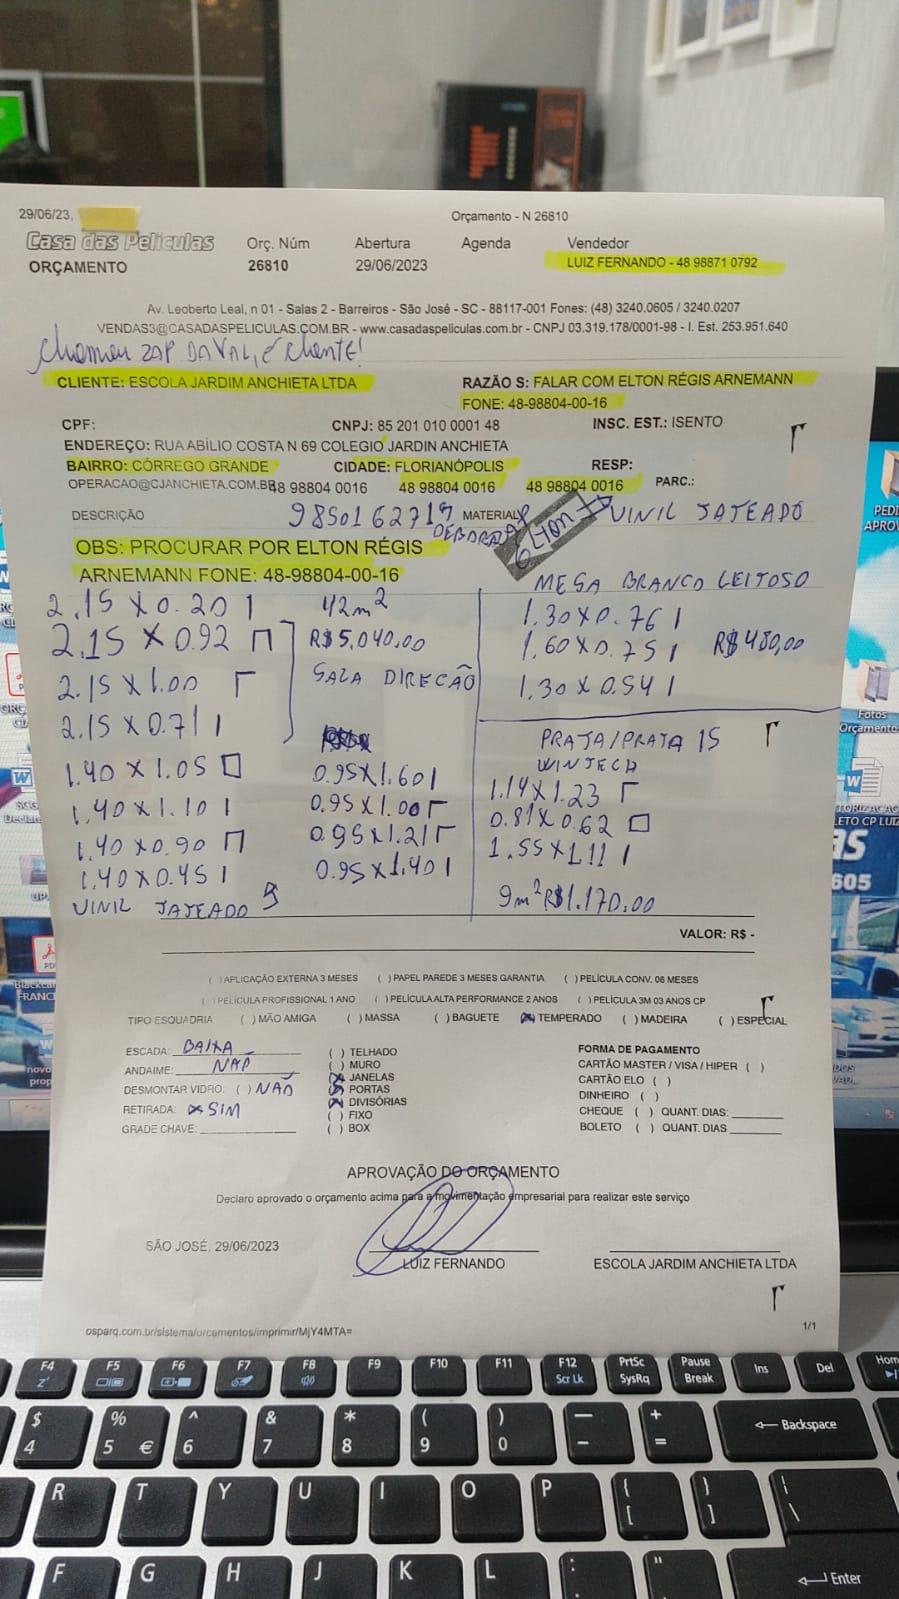 29/06/23,
Orçamento - N 26810
Casa das Películas
ORÇAMENTO
Orç. Núm
26810
Abertura
29/06/2023
Agenda
Vendedor
LUIZ FERNANDO - 48 98871 0792
Av. Leoberto Leal, n 01 - Salas 2 - Barreiros - São José - SC - 88117-001 Fones: (48) 3240.0605 / 3240.0207
VENDAS3@CASADASPELICULAS.COM.BR - www.casadaspeliculas.com.br - CNPJ 03.319.178/0001-98 - I. Est. 253.951.640
ZAP DA VAL, É cliente!
CLIENTE: ESCOLA JARDIM ANCHIETA LTDA
RAZÃO S: FALAR COM ELTON RÉGIS ARNEMANN
FONE: 48-98804-00-16
CPF:
CNPJ: 85 201 010 0001 48
INSC. EST.: ISENTO
ENDEREÇO: RUA ABÍLIO COSTA N 69 COLEGIO JARDIN ANCHIETA
BAIRRO: CÓRREGO GRANDE
CIDADE: FLORIANÓPOLIS
RESP:
OPERACAO@CJANCHIETA.COM.BR
48 98804 0016
48 98804 0016
48 98804 0016
PARC.:
DESCRIÇÃO
985016271
MATERIAL
DEBORA
ELTON
VINIL JATEADO
OBS: PROCURAR POR ELTON RÉGIS
ARNEMANN FONE: 48-98804-00-16
2.15 X 0.20 |
2.15 X 0.92 Π
2.15 X 1.00 Γ
2.15 X 0.71 |
1.40 X 1.05 □
1.40 X 1.10 |
1.40 X 0.90 Π
1.40 X 0.45 |
VINIL JATEADO
42m²
R$5.040,00
SALA DIRECÃO
0.95 X 1.60 |
0.95 X 1.00 Γ
0.95 X 1.21 Γ
0.95 X 1.40 |
MESA BRANCO LEITOSO
1.30 X 0.76 |
1.60 X 0.75 |
R$480,00
1.30 X 0.54 |
PRATA/PRATA 15
WINTECH
1.14 X 1.23 Γ
0.81 X 0.62 □
1.55 X 1.11 |
9m² R$1.170,00
VALOR: R$ -
( ) APLICAÇÃO EXTERNA 3 MESES ( ) PAPEL PAREDE 3 MESES GARANTIA ( ) PELÍCULA CONV. 06 MESES
( ) PELÍCULA PROFISSIONAL 1 ANO ( ) PELÍCULA ALTA PERFORMANCE 2 ANOS ( ) PELÍCULA 3M 03 ANOS CP
TIPO ESQUADRIA ( ) MÃO AMIGA ( ) MASSA ( ) BAGUETE (X) TEMPERADO ( ) MADEIRA ( ) ESPECIAL
ESCADA: BAIXA
ANDAIME: NAO
DESMONTAR VIDRO: ( ) NÃO
RETIRADA: X SIM
GRADE CHAVE:
( ) TELHADO
( ) MURO
(X) JANELAS
(X) PORTAS
(X) DIVISÓRIAS
( ) FIXO
( ) BOX
FORMA DE PAGAMENTO
CARTÃO MASTER / VISA / HIPER ( )
CARTÃO ELO ( )
DINHEIRO ( )
CHEQUE ( ) QUANT. DIAS:
BOLETO ( ) QUANT. DIAS
APROVAÇÃO DO ORÇAMENTO
Declaro aprovado o orçamento acima para a movimentação empresarial para realizar este serviço
SÃO JOSÉ, 29/06/2023
LUIZ FERNANDO
ESCOLA JARDIM ANCHIETA LTDA
osparq.com.br/sistema/orcamentos/imprimir/MjY4MTA=
1/1
PEDI
APROV
Fotos
Orçamento
605
F4 F5 F6 F7 F8 F9 F10 F11 F12 PrtSc Pause Ins Del Hom
Scr Lk SysRq Break
$ % ^ & * ( ) — + Backspace
4 5 € 6 7 8 9 0 - =
R T Y U I O P { } |
[ ] \
F G H J K L : " Enter
;